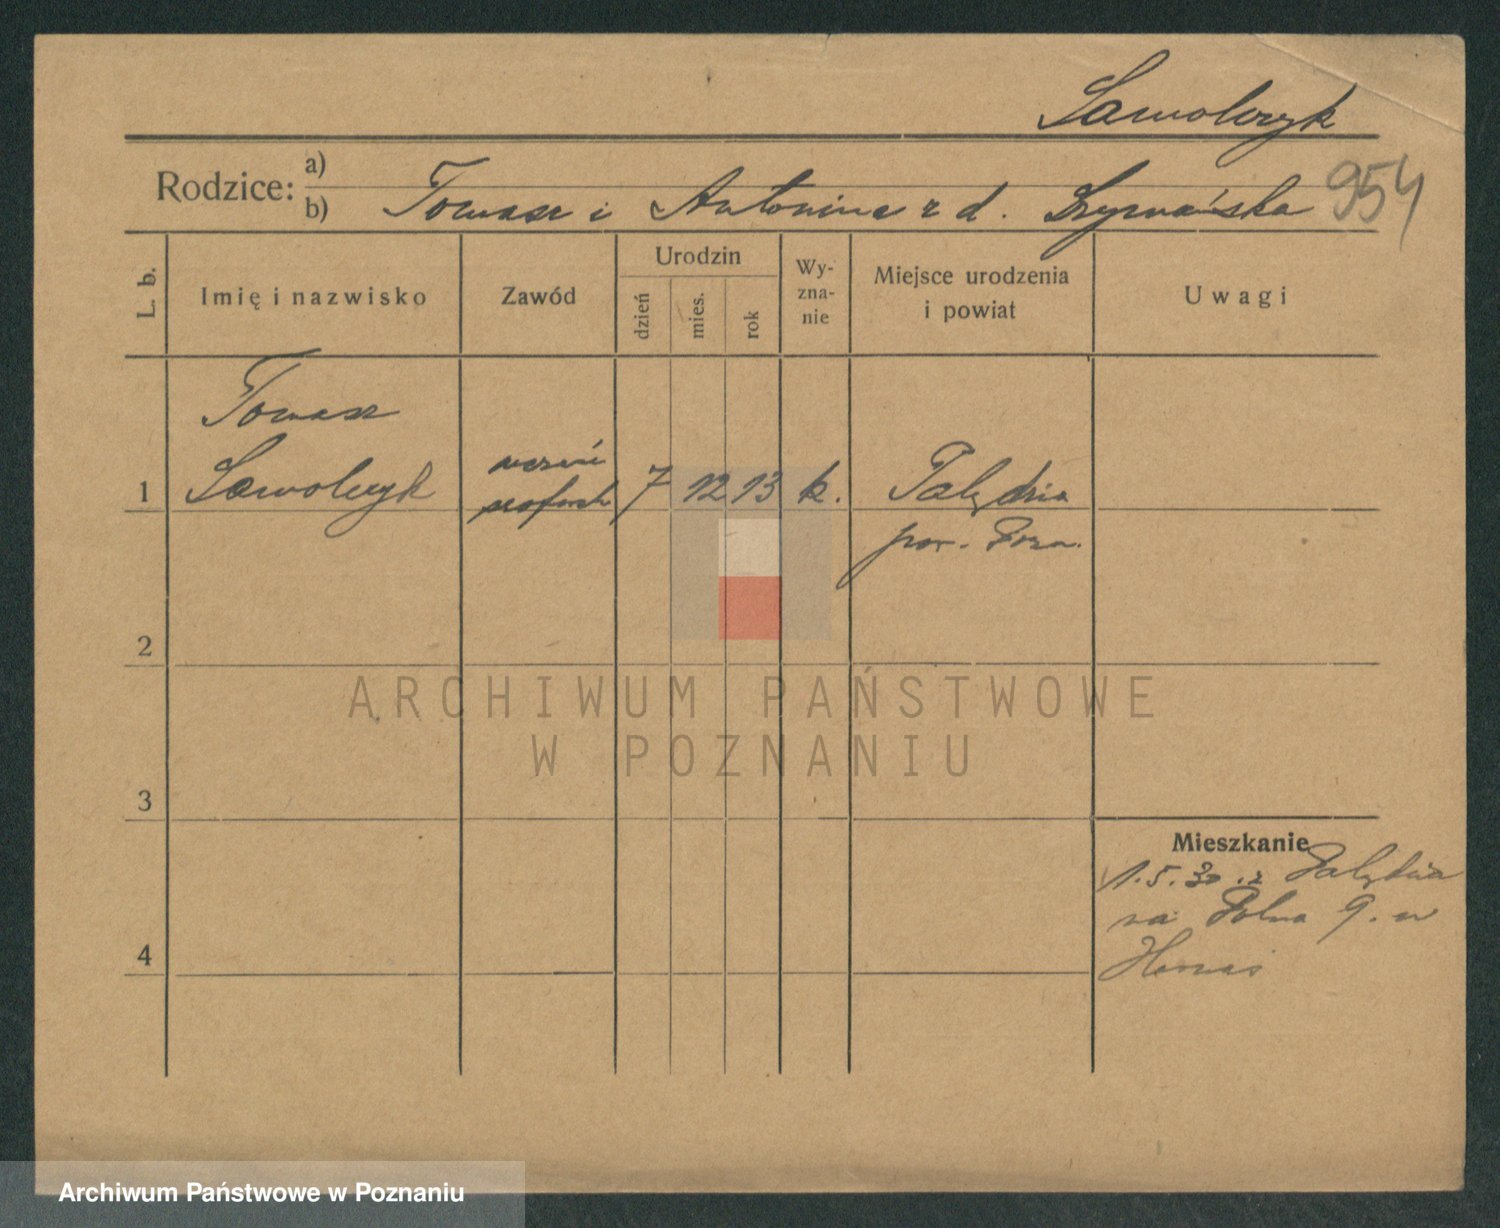 Samolczyk
Rodzice: a)
b) Tomasz i Antonina z d. Szymańska
954
L. b.
Imię i nazwisko
Zawód
Urodzin
dzień
mies.
rok
Wy-
zna-
nie
Miejsce urodzenia
i powiat
Uwagi
Tomasz
1 Samolczyk
uczeń
7 12 13 k.
Palędzia
pow. Pozn.
2
3
4
Mieszkanie
1.5.30 z Palędzia
na Polna 9. u
ARCHIWUM PAŃSTWOWE
W POZNANIU
Archiwum Państwowe w Poznaniu